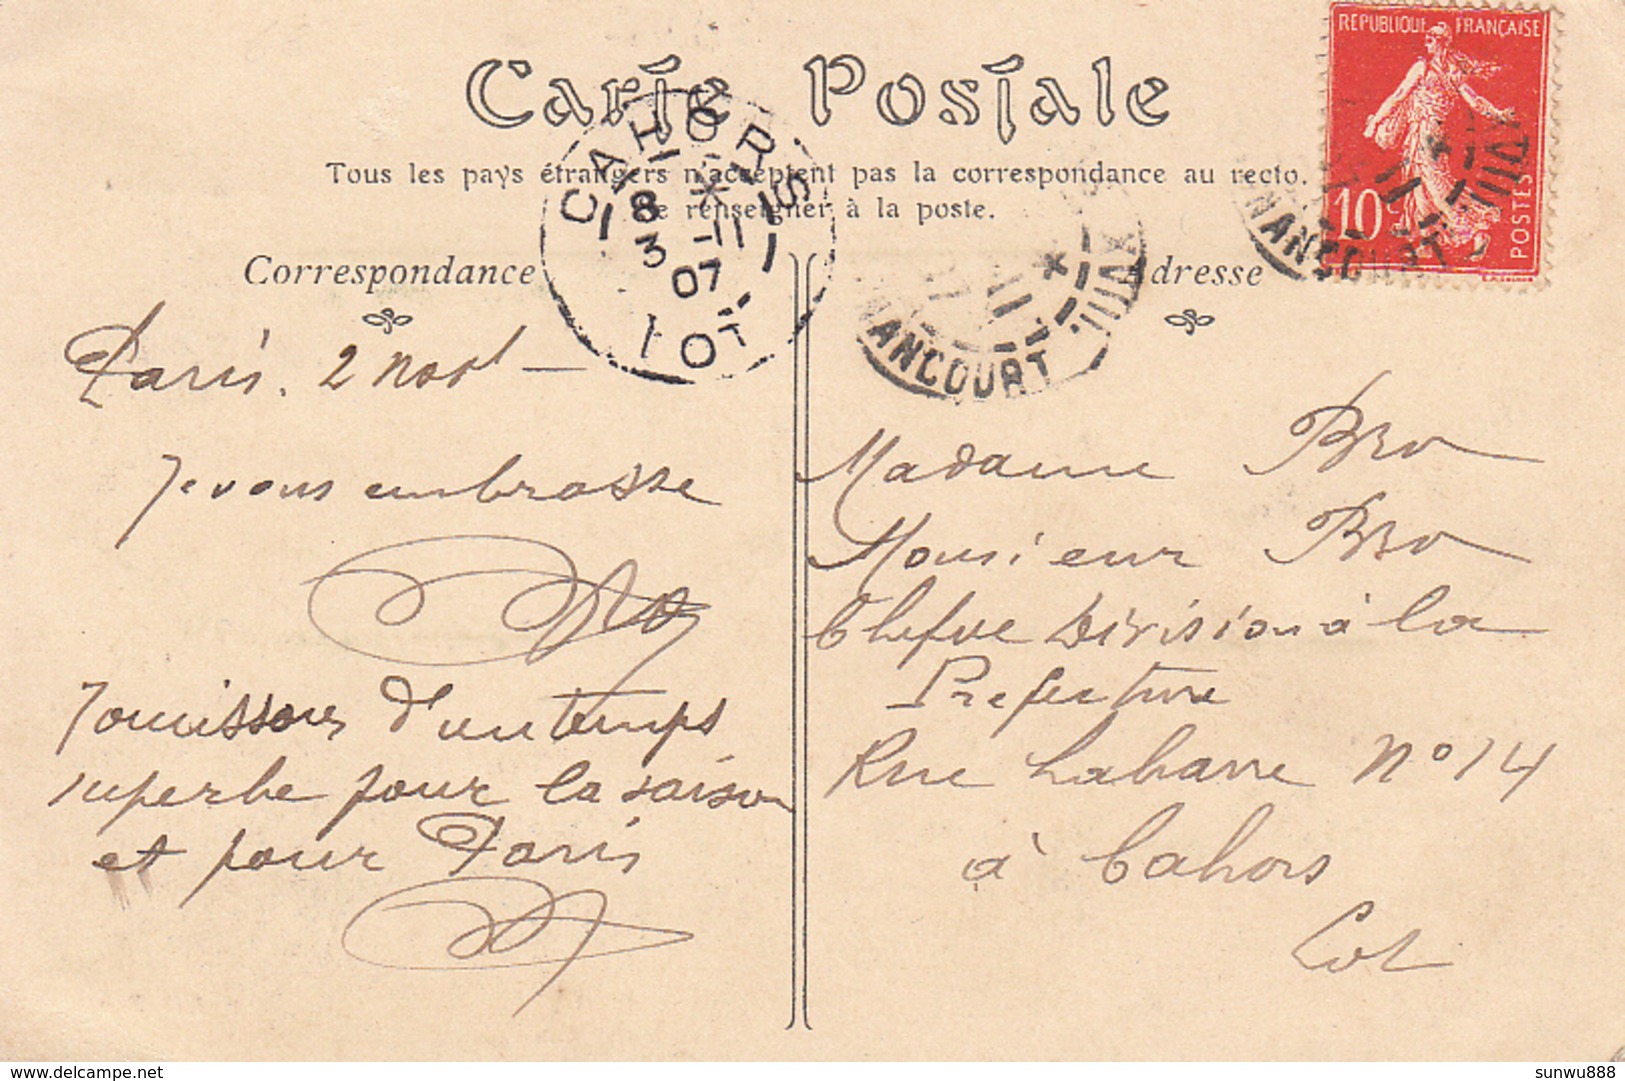 Carte Postale
Tous les pays étrangers n'acceptent pas la correspondance au recto.
Se renseigner à la poste.
Correspondance
Adresse
REPUBLIQUE FRANÇAISE
10c
POSTES
CAHORS
8 *
3 -11
07
LOT
ANCOURT
XVIII
NANCOURT
Paris. 2 Nov
Je vous embrasse
Jouissons d'un temps
superbe pour la saison
et pour Paris
Madame Bro
Monsieur Bro
Chef de Division à la
Préfecture
Rue Labarre N° 14
à Cahors
Lot
sunwu888